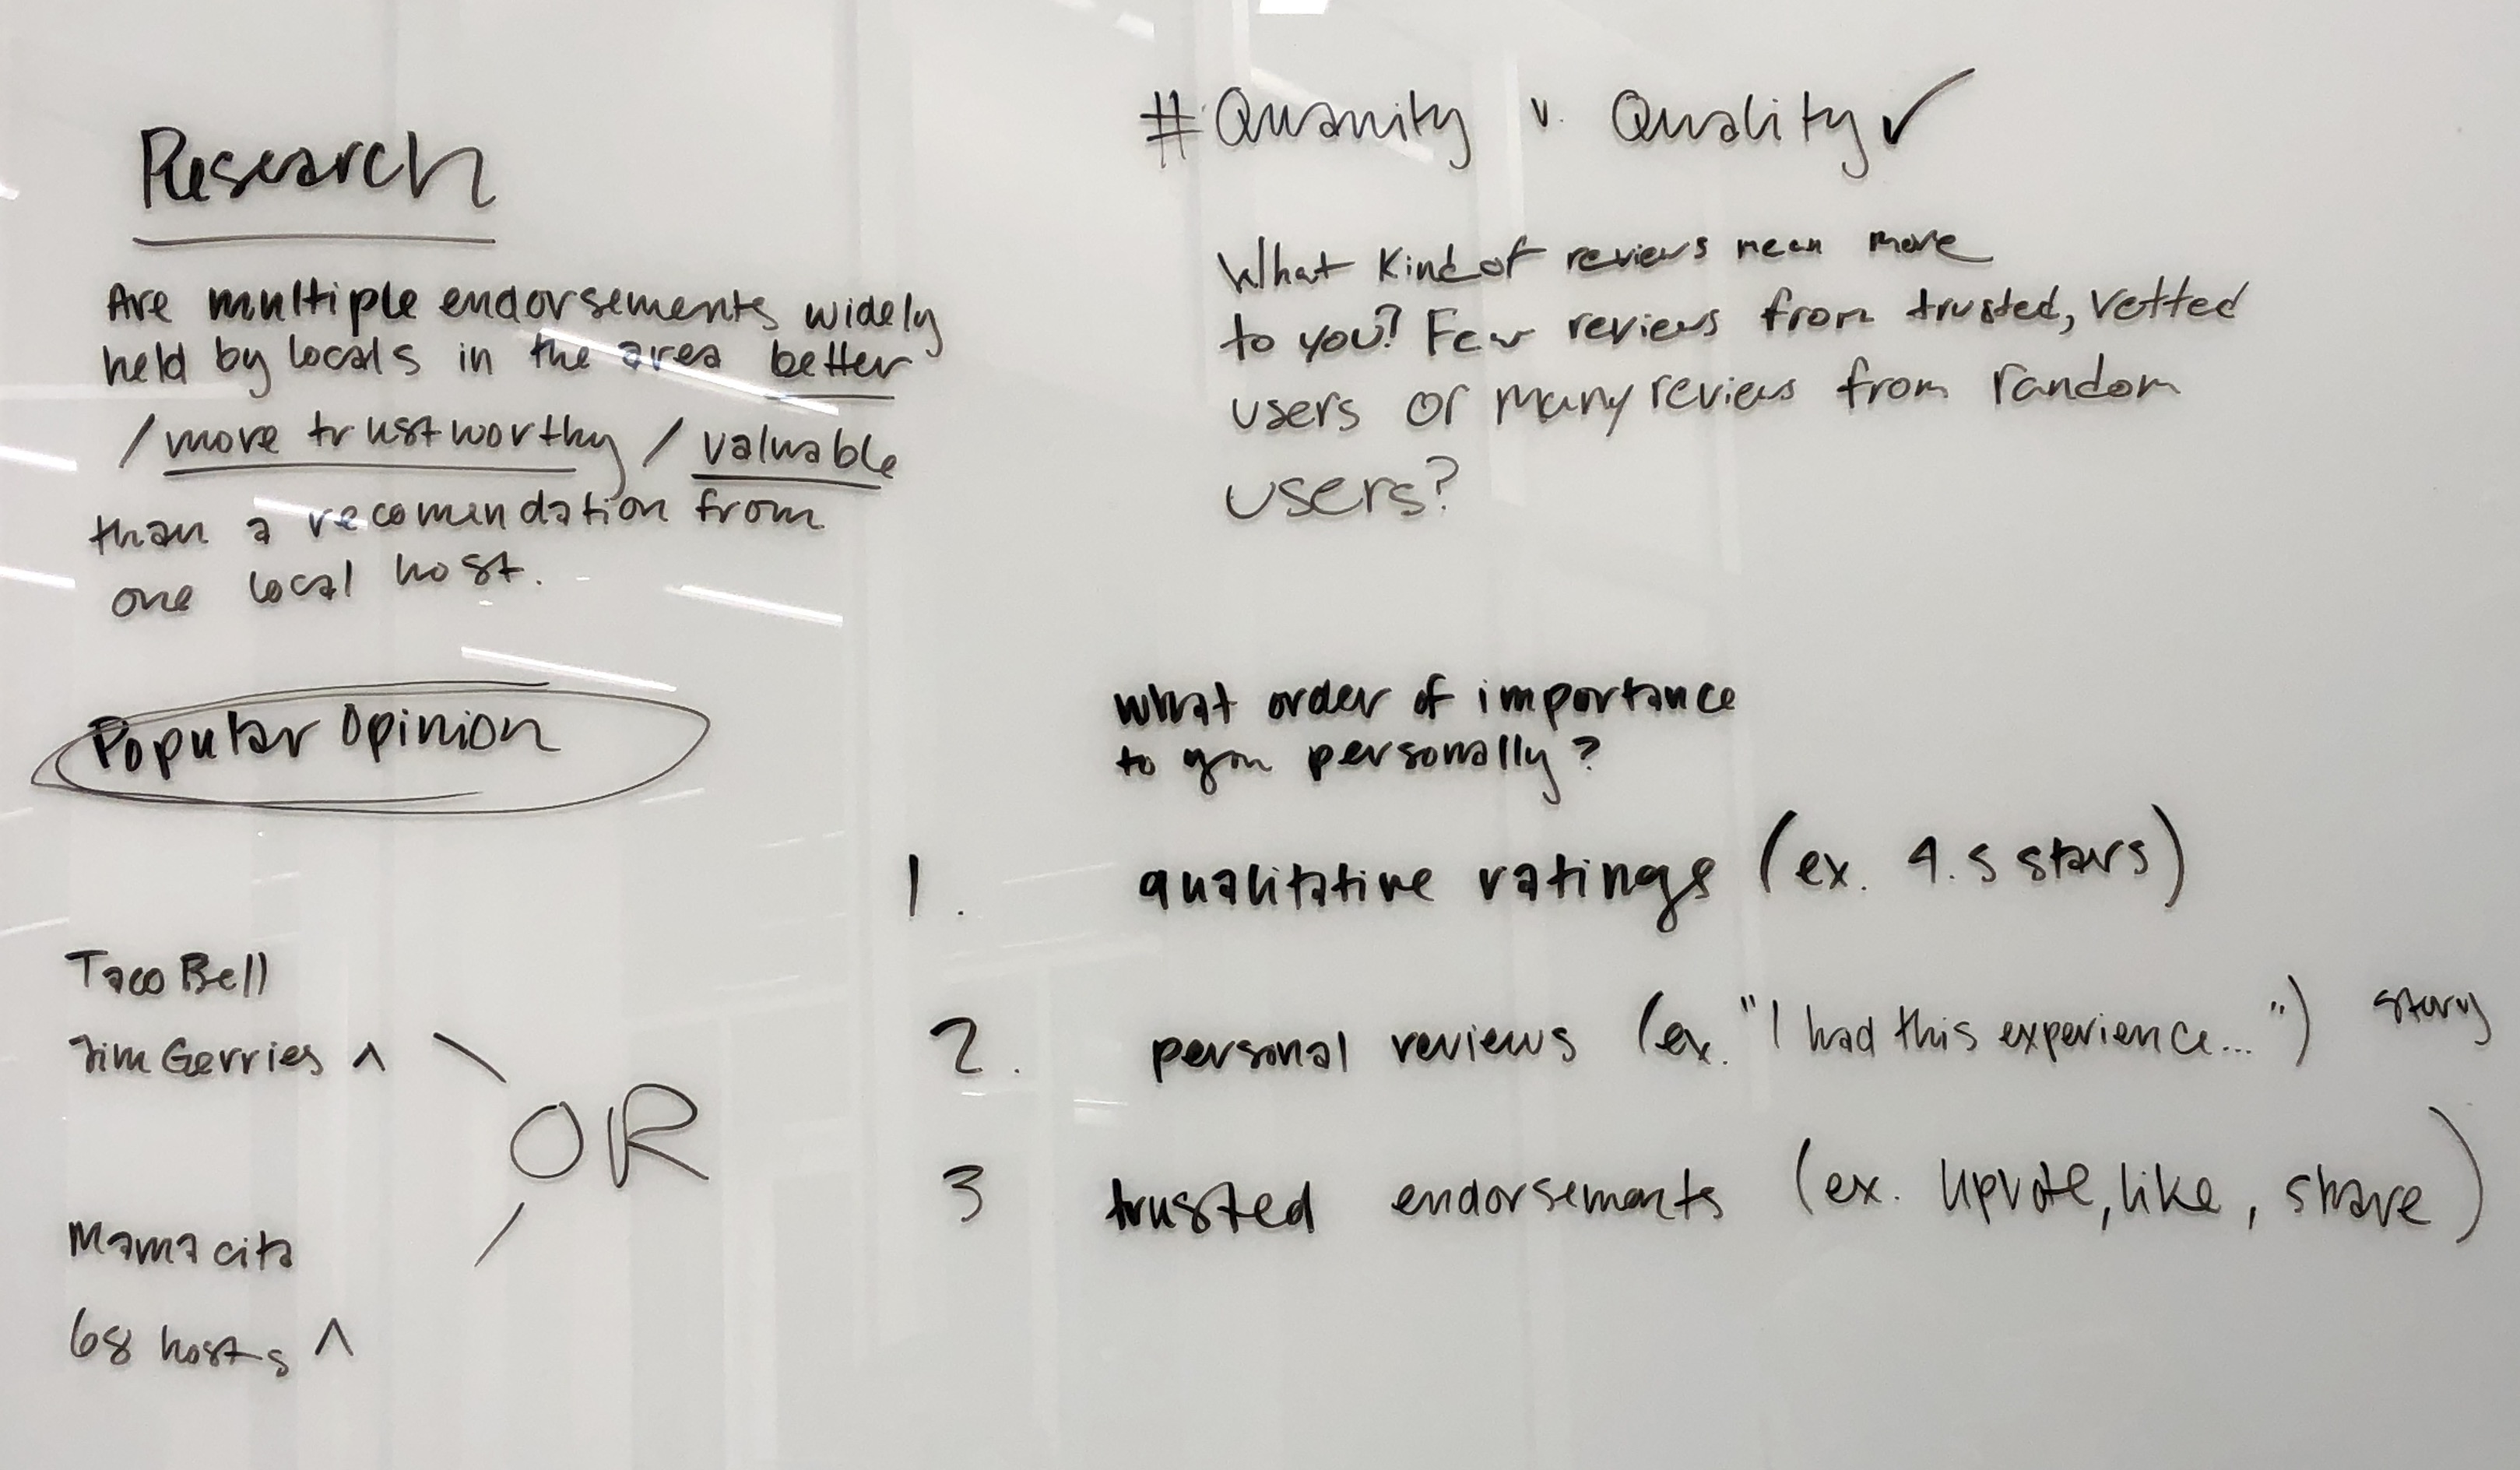 Research
Are multiple endorsements widely
held by locals in the area better
/ more trustworthy / valuable
than a recomendation from
one local host.
Popular Opinion
Taco Bell
Jim Gerries ^
OR
Mamacita
68 hosts ^
# Quanity v. Quality ✓
What kind of reviews mean more
to you? Few reviews from trusted, vetted
users or many reviews from random
users?
What order of importance
to you personally?
1. qualitative ratings (ex. 4.5 stars)
2. personal reviews (ex. "I had this experience...") story
3 trusted endorsements (ex. upvote, like, share)